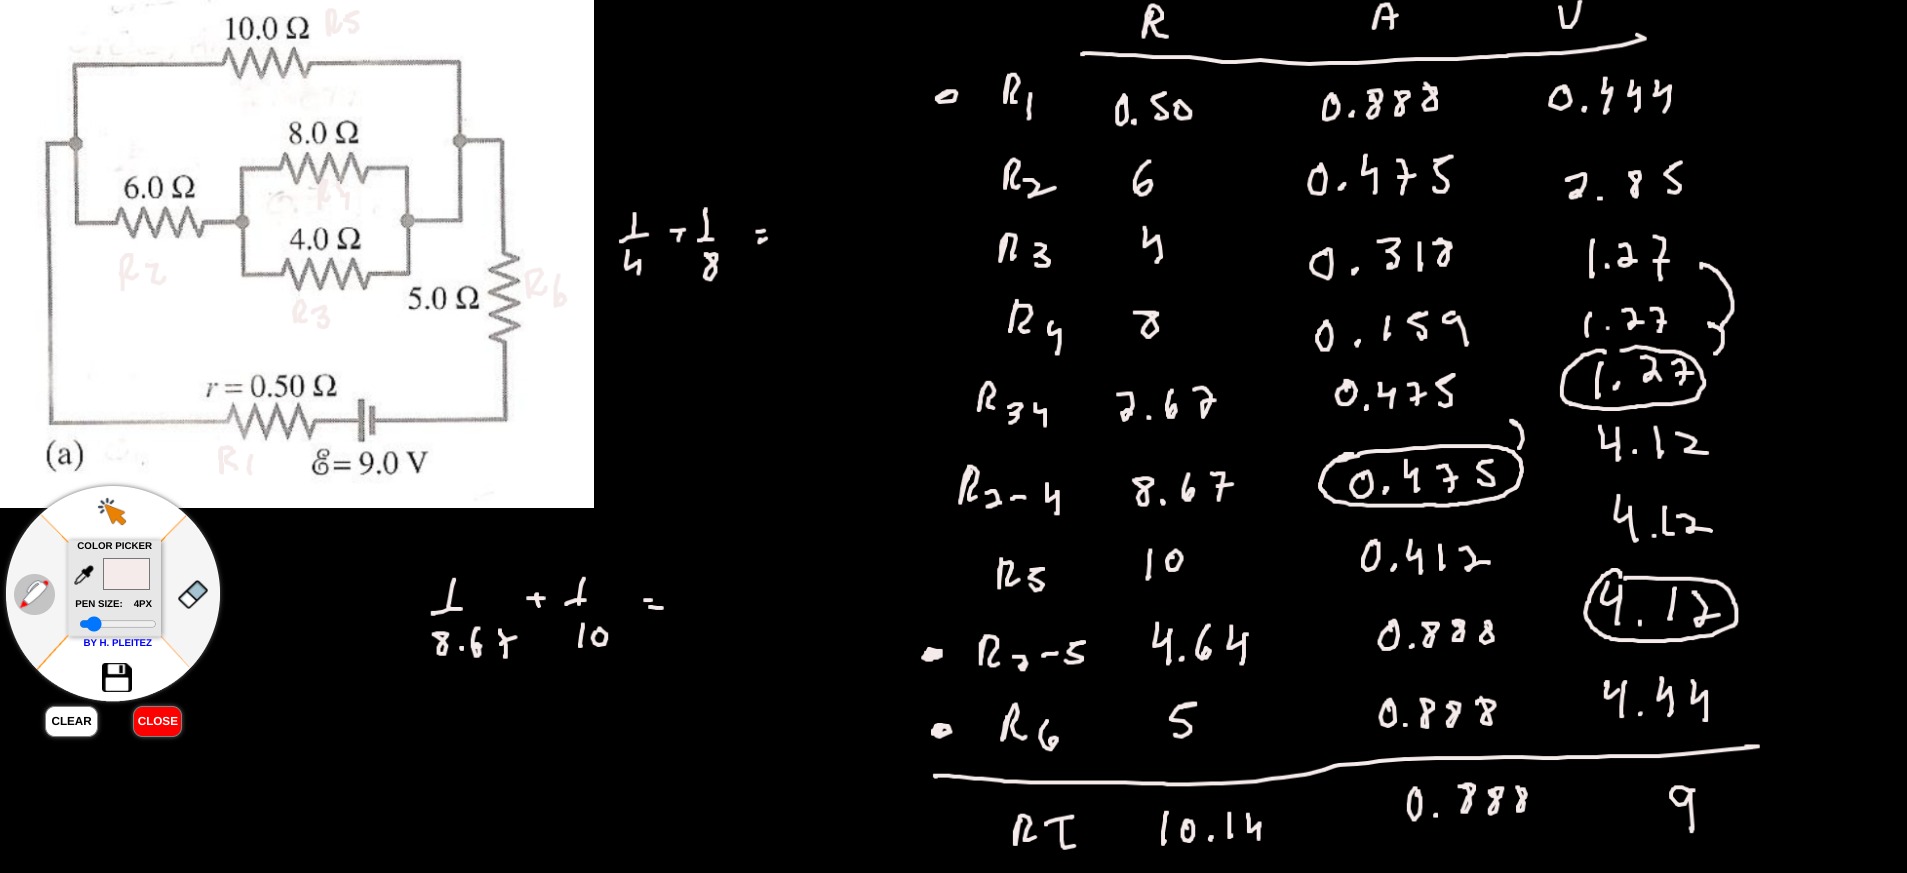 10.0 Ω R5
8.0 Ω
R4
6.0 Ω
4.0 Ω
R2
R3
5.0 Ω R6
r = 0.50 Ω
(a)
R1
ℰ = 9.0 V
1/4 + 1/8 =
1/8.67 + 1/10 =
COLOR PICKER
PEN SIZE: 4PX
BY H. PLEITEZ
CLEAR CLOSE
R A V
R1 0.50 0.888 0.444
R2 6 0.475 2.85
R3 4 0.318 1.27
R4 8 0.159 1.27
R34 2.67 0.475 1.27
R2-4 8.67 0.475 4.12
R5 10 0.412 4.12
R2-5 4.64 0.888 4.12
R6 5 0.888 4.44
RT 10.14 0.888 9